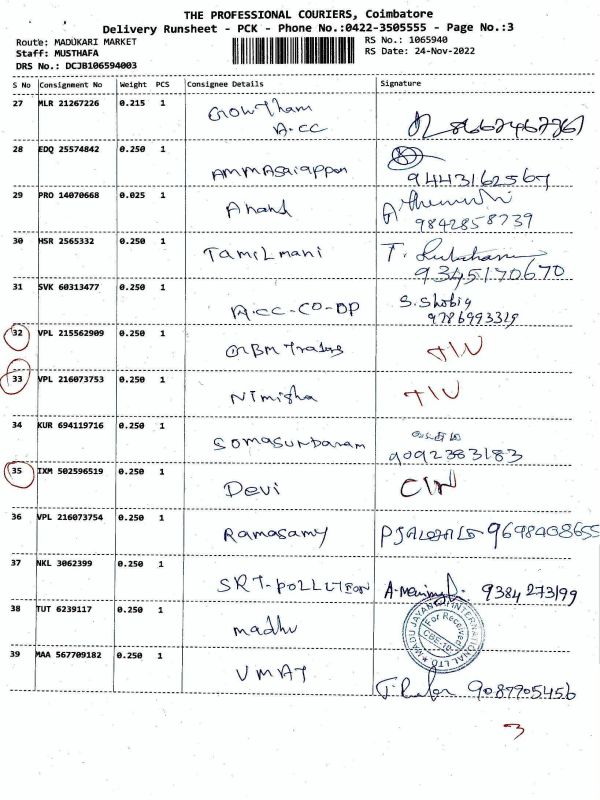 THE PROFESSIONAL COURIERS, Coimbatore
Delivery Runsheet - PCK - Phone No.:0422-3505555 - Page No.:3
Route: MADUKARI MARKET
RS No.: 1065940
Staff: MUSTHAFA
RS Date: 24-Nov-2022
DRS No.: DCJB106594003
S No Consignment No Weight PCS Consignee Details Signature
27 MLR 21267226 0.215 1 Gowtham
A.CC
28 EDQ 25574842 0.250 1 AMMASaiappan
9443162567
29 PRO 14070668 0.025 1 Anand
9842858739
30 HSR 2565332 0.250 1 TamilMani
9345170670
31 SVK 60313477 0.250 1 A.CC-CO-OP S.Shobiq
9786993319
32 VPL 215562909 0.250 1 Traders
33 VPL 216073753 0.250 1 Nimisha
34 KUR 694119716 0.250 1 Somasundaram
9092383183
35 IXM 502596519 0.250 1 Devi
36 VPL 216073754 0.250 1 Ramasamy 9698408655
37 NKL 3062399 0.250 1 SRT-POLLUTION 9384273199
38 TUT 6239117 0.250 1 madhu
MADU JAYANTI INTERNATIONAL LTD
For Received
39 MAA 567709182 0.250 1 VMAT
9087905456
3